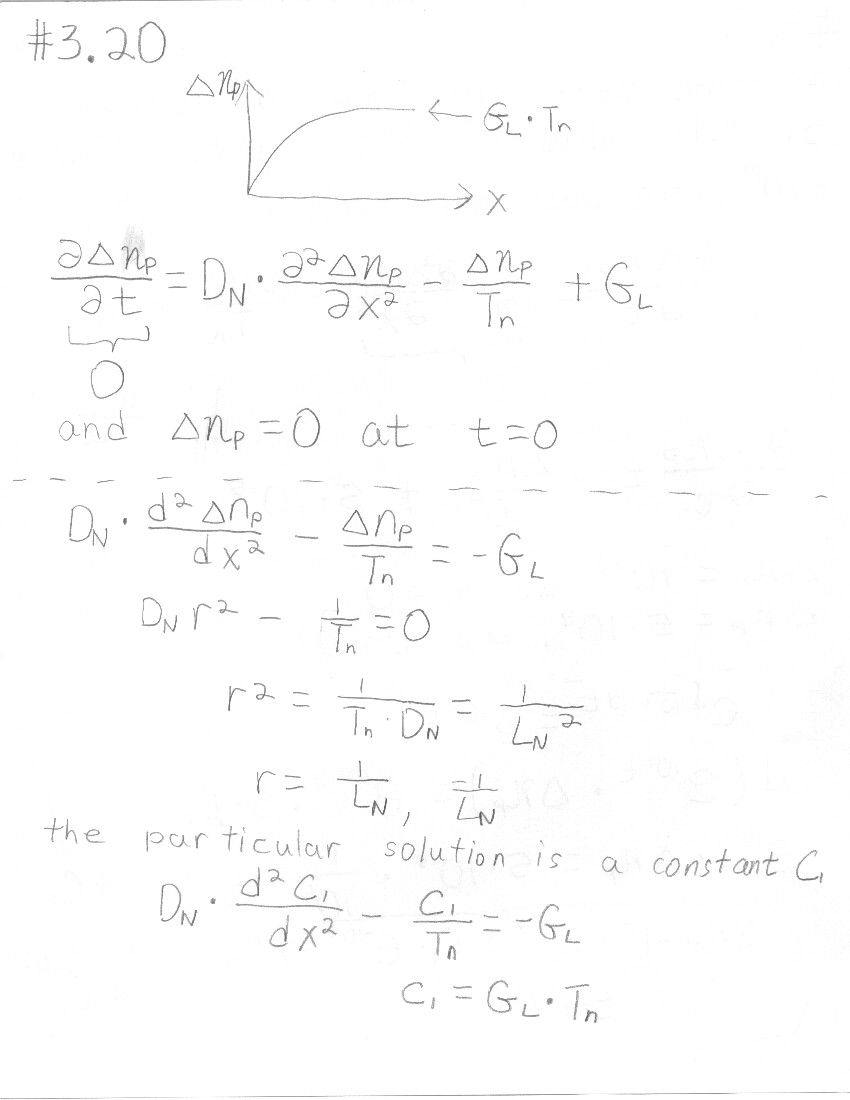 #3.20
Δnₚ
← G_L · Tₙ
x
∂Δnₚ/∂t = D_N · ∂²Δnₚ/∂x² - Δnₚ/Tₙ + G_L
0
and Δnₚ = 0 at t = 0
D_N · d²Δnₚ/dx² - Δnₚ/Tₙ = -G_L
D_N r² - 1/Tₙ = 0
r² = 1/(Tₙ · D_N) = 1/L_N²
r = 1/L_N, -1/L_N
the particular solution is a constant C₁
D_N · d²C₁/dx² - C₁/Tₙ = -G_L
C₁ = G_L · Tₙ